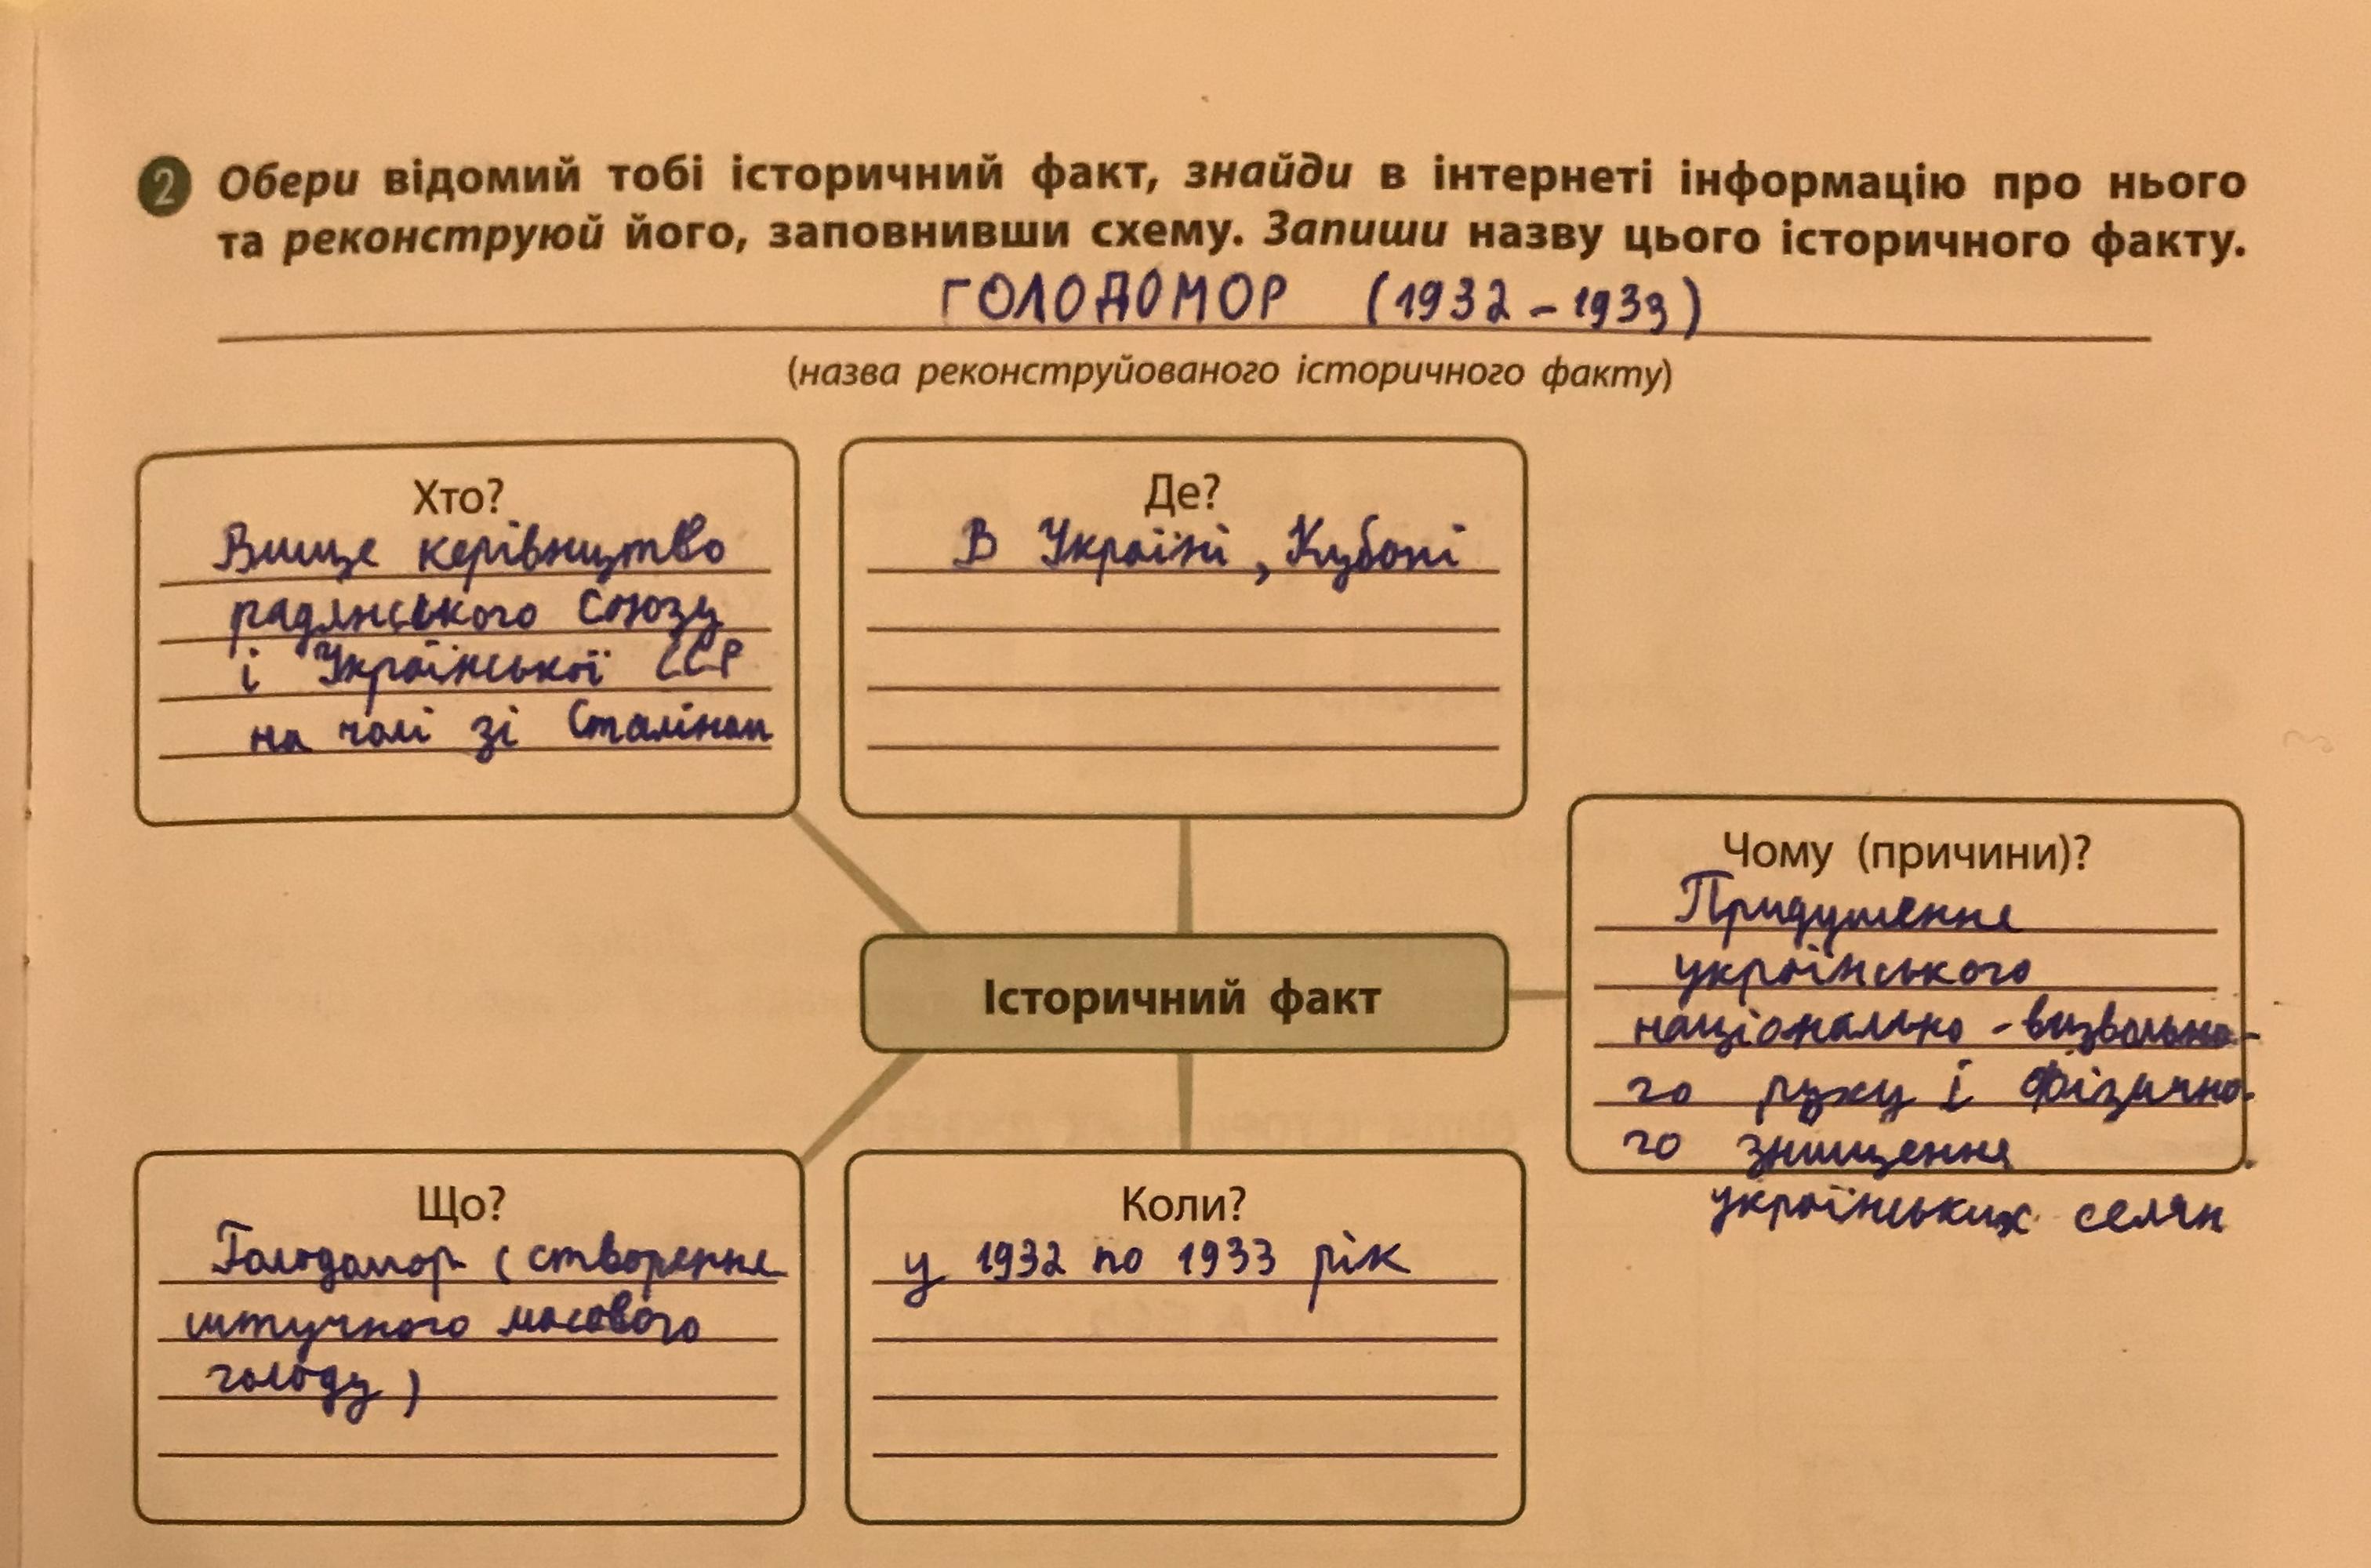 2 Обери відомий тобі історичний факт, знайди в інтернеті інформацію про нього
та реконструюй його, заповнивши схему. Запиши назву цього історичного факту.
ГОЛОДОМОР (1932 – 1933)
(назва реконструйованого історичного факту)
Хто?
Вище керівництво
радянського Союзу
і Української ССР
на чолі зі Сталіном
Де?
В Україні, Кубані
Чому (причини)?
Придушення
українського
національно - визвольно-
го руху і фізично-
го знищення
українських селян
Історичний факт
Що?
Голодомор (створення
штучного масового
голоду)
Коли?
у 1932 по 1933 рік